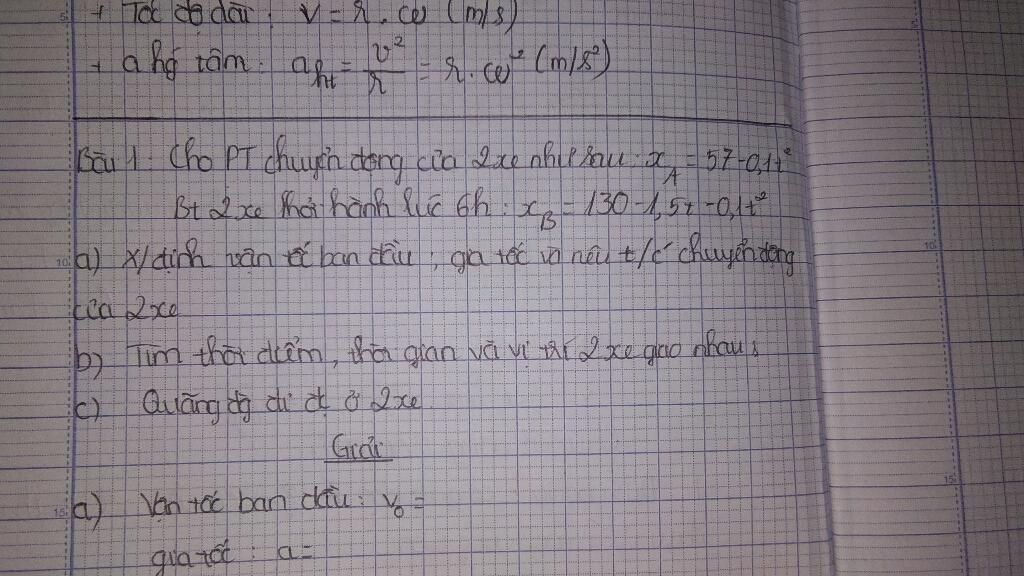 + Tốc độ dài: v = r.ω (m/s)
+ a hg tâm: aht = v²/r = r.ω² (m/s²)
Bài 1: Cho PT chuyển động của 2 xe như sau: xA = 5t - 0,1t²
Bt 2 xe khởi hành lúc 6h: xB = 130 - 1,5t - 0,1t²
a) X/định vận tốc ban đầu, gia tốc và nêu t/c chuyển động
của 2 xe
b) Tìm thời điểm, thời gian và vị trí 2 xe gặp nhau
c) Quãng đg đi đc ở 2 xe
Giải
a) Vận tốc ban đầu: v₀ =
gia tốc: a =